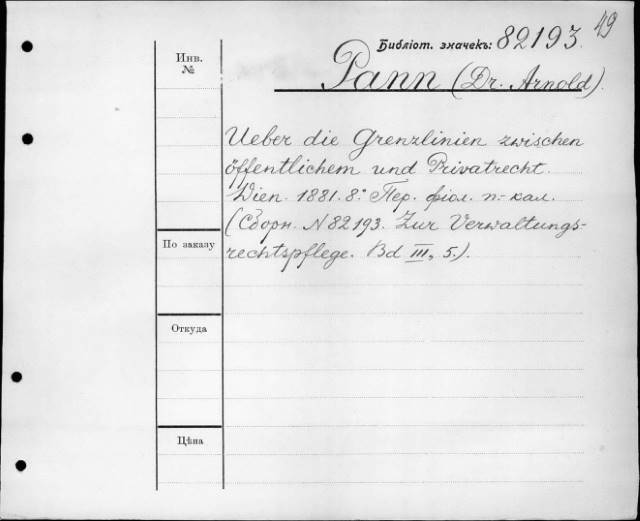 49
Библіот. значекъ: 82193.
Инв.
№
Pann (Dr. Arnold).
Ueber die Grenzlinien zwischen
öffentlichem und Privatrecht.
Wien. 1881. 8:̊ Пер. фіол. п.-кал.
(Сборн. N 82193. Zur Verwaltungs-
rechtspflege. Bd III, 5.).
По заказу
Откуда
Цѣна